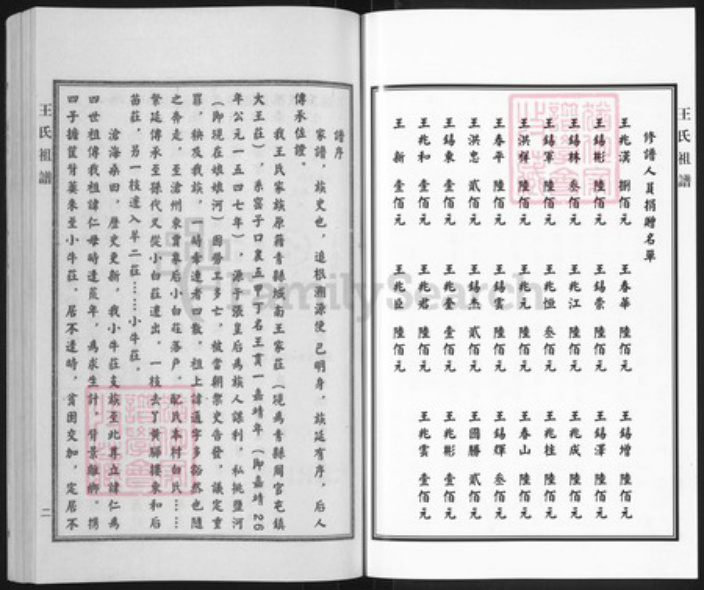 王氏祖譜
修譜人員捐贈名單
王兆漢 捌佰元 王春華 陸佰元 王錫增 陸佰元
王錫彬 陸佰元 王錫榮 陸佰元 王錫澤 陸佰元
王錫林 叁佰元 王兆江 陸佰元 王兆成 陸佰元
王錫軍 陸佰元 王兆恒 叁佰元 王兆柱 陸佰元
王洪輝 陸佰元 王兆元 陸佰元 王春山 陸佰元
王春平 陸佰元 王錫雲 陸佰元 王錫輝 叁佰元
王洪忠 貳佰元 王錫杰 貳佰元 王國勝 貳佰元
王錫東 壹佰元 王兆春 壹佰元 王兆彬 壹佰元
王兆和 壹佰元 王兆君 陸佰元 王兆雲 壹佰元
王 新 壹佰元 王兆臣 陸佰元
譜序
家譜，族史也，追根溯源使已明身，族延有序，后人
傳承佐證。
我王氏家族原籍青縣城南王家莊（現為青縣周官屯鎮
大王莊），系窑子口裏五甲丁名王貫一嘉靖年（即嘉靖26
年公元一五四七年），源于張皇后為族人謀利，私挑鹽河
（即現在娘娘河）因勞工多亡，被當朝禦史告發，議定重
罪，秧及我族，一時牽連者四散。祖上諱通字多豁然也隨
之奔走，至滄州東賞帛后小白莊落户。配氏本村白氏……
繁延傳承至孫代又從小白莊遷出。一枝去了黄驊擾東和后
苗莊，另一枝遷入羊二莊……小牛莊。
滄海桑田，歷史更新，我小牛莊支族至北尊立諱仁為
四世祖傳我祖諱仁母時逢荒年，為求生計，背景離鄉，携
四子擔筐背簍來至小牛莊。居不逢時，貧困交加，定居不
王氏祖譜
二
FamilySearch